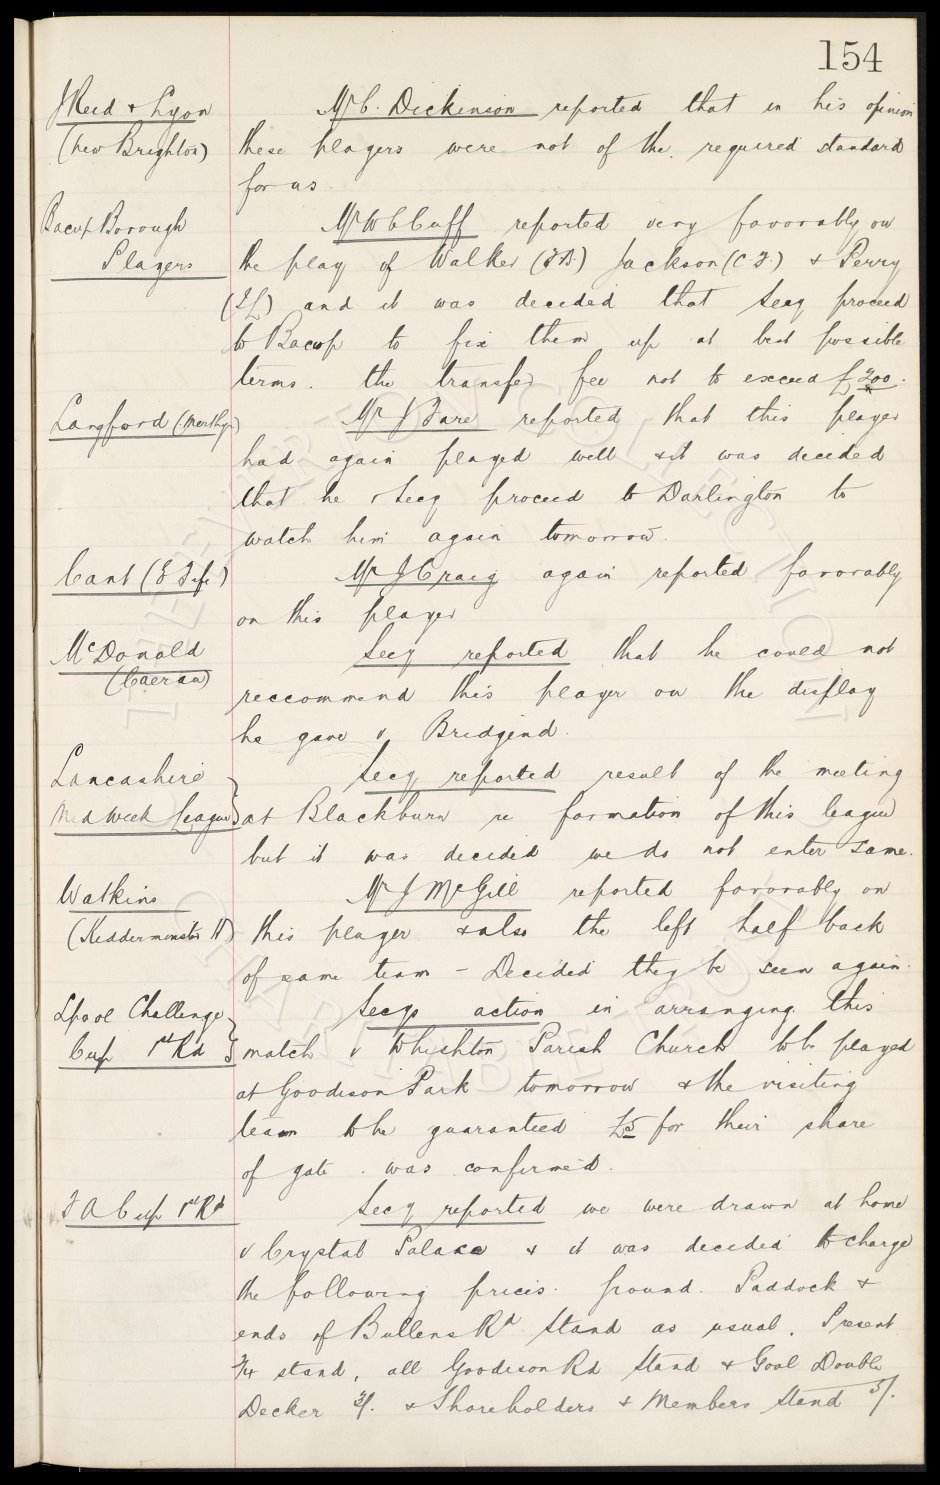 154
J Reid & Lyon
(New Brighton)
Mr C. Dickinson reported that in his opinion
these players were not of the required standard
for us.
Bacup Borough
Players
Mr W C Cuff reported very favorably on
the play of Walker (F.B.) Jackson (C F.) & Perry
(I L) and it was decided that Secy proceed
to Bacup to fix them up at best possible
terms. the transfer fee not to exceed £300.
Langford (Merthyr)
Mr J Fare reported that this player
had again played well & it was decided
that he & Secy proceed to Darlington to
watch him again tomorrow.
Cant (E Fife)
Mr J Craig again reported favorably
on this player
McDonald
(Caerau)
Secy reported that he could not
reccommend this player on the display
he gave v Bridgend.
Lancashire
Mid Week League
Secy reported result of the meeting
at Blackburn re formation of this league
but it was decided we do not enter same.
Watkins
(Kidderminster H)
Mr J McGill reported favorably on
this player & also the left half back
of same team - Decided they be seen again.
Lpool Challenge
Cup 1st Rd
Secys action in arranging this
match v Whishton Parish Church to be played
at Goodison Park tomorrow & the visiting
team to be guaranteed £5 for their share
of gate. was confirmed.
F A Cup 1st Rd
Secy reported we were drawn at home
v Crystal Palace & it was decided to charge
the following prices. Ground. Paddock &
ends of Bullens Rd Stand as usual. Present
2/4 stand, all Goodison Rd Stand & Goal Double
Decker 3/. & Shareholders & Members Stand 5/.